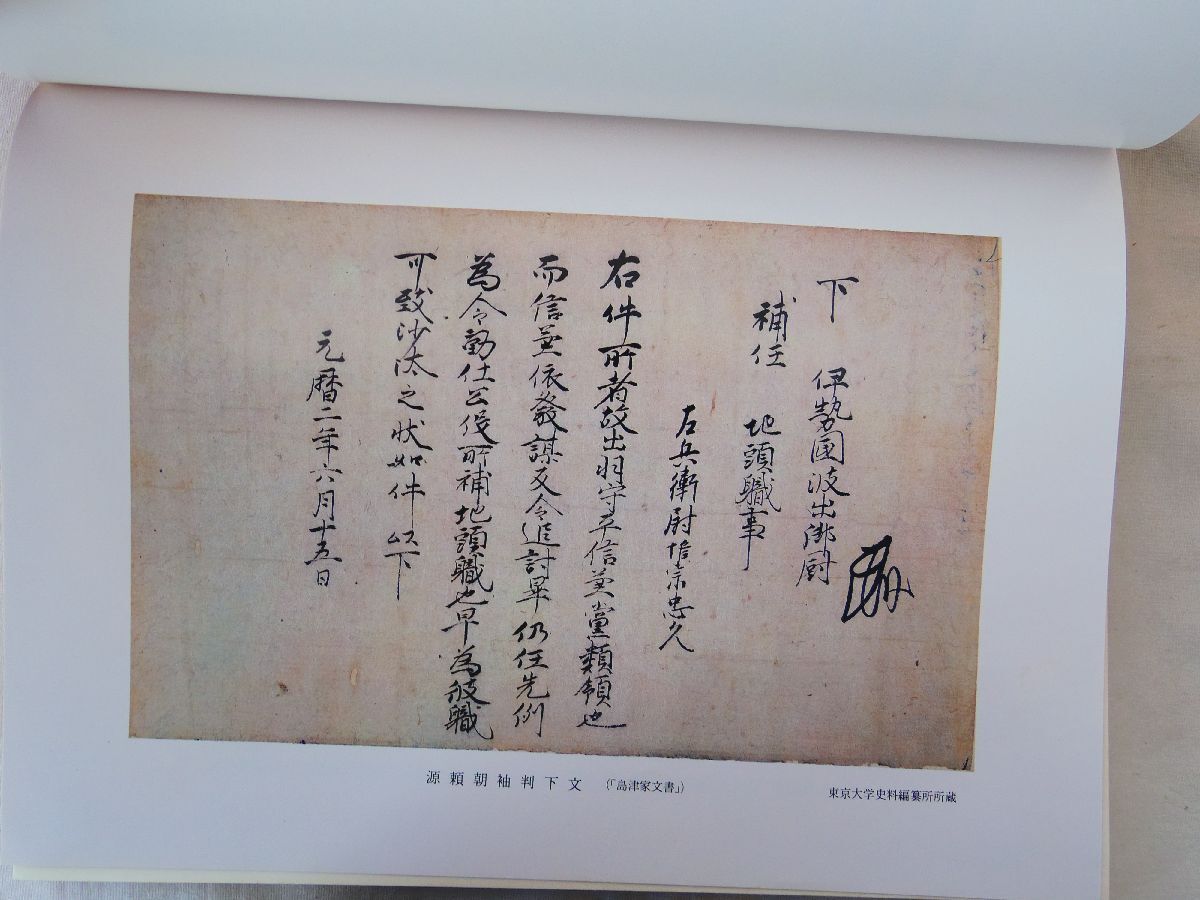 下 伊勢國波出御厨
補任 地頭職事
左兵衛尉惟宗忠久
右件所者故出羽守平信兼黨類領也
而信兼依發謀反令追討畢仍任先例
為令勤仕公役所補地頭職也早為彼職
可致沙汰之状如件以下
元暦二年六月十五日
源頼朝袖判下文 (「島津家文書」)
東京大学史料編纂所所蔵